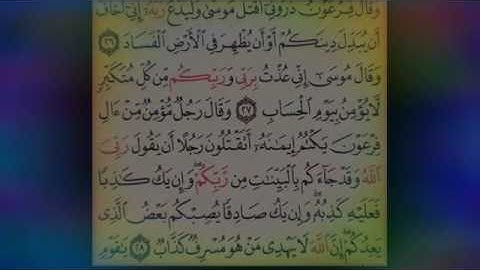 وَقَالَ فِرْعَوْنُ ذَرُونِي أَقْتُلْ مُوسَىٰ وَلْيَدْعُ رَبَّهُ إِنِّي أَخَافُ
أَن يُبَدِّلَ دِينَكُمْ أَوْ أَن يُظْهِرَ فِي الْأَرْضِ الْفَسَادَ ٢٦
وَقَالَ مُوسَىٰ إِنِّي عُذْتُ بِرَبِّي وَرَبِّكُم مِّن كُلِّ مُتَكَبِّرٍ
لَّا يُؤْمِنُ بِيَوْمِ الْحِسَابِ ٢٧ وَقَالَ رَجُلٌ مُّؤْمِنٌ مِّنْ ءَالِ
فِرْعَوْنَ يَكْتُمُ إِيمَانَهُ أَتَقْتُلُونَ رَجُلًا أَن يَقُولَ رَبِّيَ
اللَّهُ وَقَدْ جَاءَكُم بِالْبَيِّنَاتِ مِن رَّبِّكُمْ ۖ وَإِن يَكُ كَاذِبًا
فَعَلَيْهِ كَذِبُهُ ۖ وَإِن يَكُ صَادِقًا يُصِبْكُم بَعْضُ الَّذِي
يَعِدُكُمْ ۖ إِنَّ اللَّهَ لَا يَهْدِي مَنْ هُوَ مُسْرِفٌ كَذَّابٌ ٢٨ يَا قَوْمِ